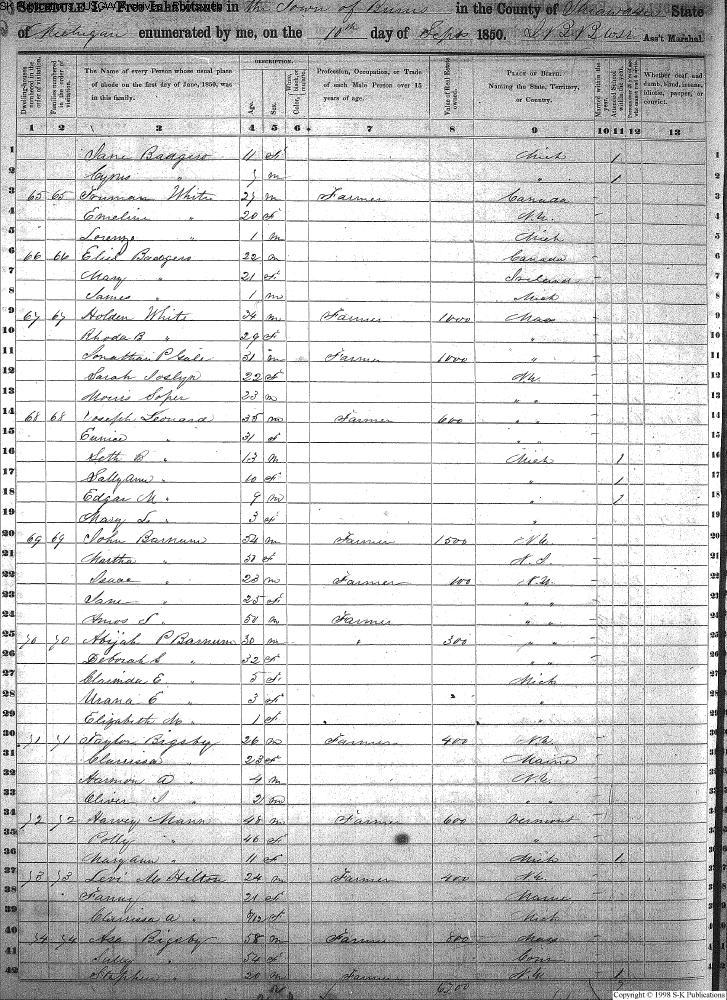 SCHEDULE I.—Free Inhabitants in the Town of Burns in the County of Shiawassee State
of Michigan enumerated by me, on the 10th day of Sept 1850. Ass't Marshal.
DESCRIPTION.
Dwelling-houses numbered in the order of visitation.
Families numbered in the order of visitation.
The Name of every Person whose usual place of abode on the first day of June, 1850, was in this family.
Age.
Sex.
Color, White, black, or mulatto.
Profession, Occupation, or Trade of each Male Person over 15 years of age.
Value of Real Estate owned.
PLACE OF BIRTH. Naming the State, Territory, or Country.
Married within the year.
Attended School within the year.
Persons over 20 y'rs of age who cannot read & write.
Whether deaf and dumb, blind, insane, idiotic, pauper, or convict.
1 2 3 4 5 6 7 8 9 10 11 12 13
1 Jane Badgero 11 f Mich 1 1
2 Cyrus " 7 m " 1 2
3 65 65 Truman White 27 m Farmer Canada 3
4 Emeline " 20 f N.Y. 4
5 Lorenzo " 1 m Mich 5
6 66 66 Badgero 22 m Canada 6
7 Mary " 21 f Ireland 7
8 James " 1 m Mich 8
9 67 67 Holden White 34 m Farmer 1000 Mass 9
10 Rhoda B " 29 f " 10
11 Jonathan P Gale 31 m Farmer 1000 " 11
12 Sarah Joslyn 22 f N.Y. 12
13 Morris Soper 23 m " " 13
14 68 68 Joseph Leonard 35 m Farmer 600 " " 14
15 Eunice " 31 f " " 15
16 Seth B " 13 m Mich 1 16
17 Sally Ann " 10 f " 1 17
18 Edgar M " 9 m " 1 18
19 Mary L " 3 f " 19
20 69 69 John Barnum 54 m Farmer 1500 N.Y. 20
21 Martha " f N.J. 21
22 Isaac " 23 m Farmer 100 N.Y. 22
23 Jane " 25 f " " 23
24 Amos " 50 m Farmer " " 24
25 70 70 Abijah P Barnum 30 m " 300 " " 25
26 Deborah " 32 f " " 26
27 Clarinda E " 5 f Mich 27
28 Urana E " 3 f " 28
29 Elizabeth M " 1 f " 29
30 71 71 Taylor Bigsby 26 m Farmer 400 N.Y. 30
31 Clarissa " 23 f Maine 31
32 Harmon A " 4 m N.Y. 32
33 Oliver " 2 m " " 33
34 72 72 Harvey Mann 48 m Farmer 600 Vermont 34
35 Polly " 46 f " 35
36 Mary Ann " 11 f Mich 1 36
37 73 73 Levi M Hilton 24 m Farmer 400 N.Y. 37
38 Fanny " 21 f Maine 38
39 Clarissa A " f Mich 39
40 74 74 Asa Bigsby 58 m Farmer 800 Mass 40
41 " 54 f Conn 41
42 Stephen " 20 m Farmer N.Y. 1 42
6700
Copyright © 1998 S-K Publications